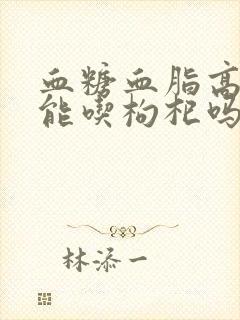 血糖血脂高
能喫枸杞吗
林添一